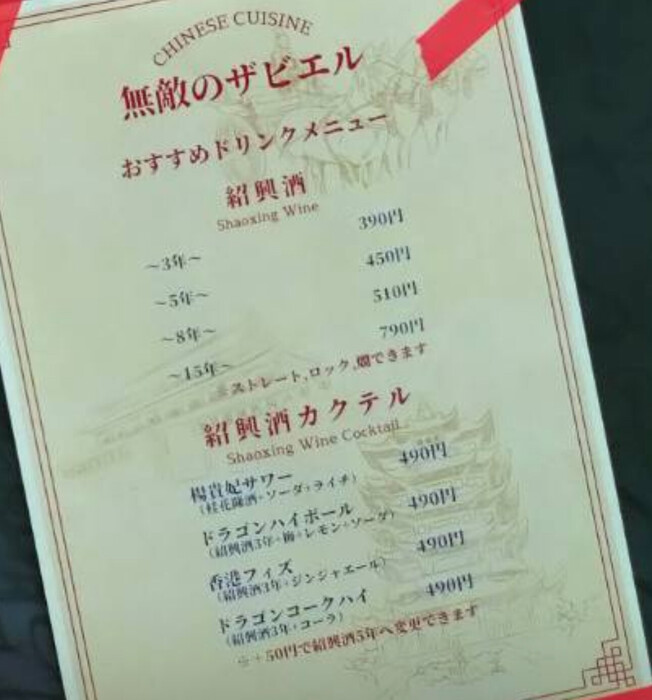 CHINESE CUISINE
無敵のザビエル
おすすめドリンクメニュー
紹興酒
Shaoxing Wine
～3年～ 390円
～5年～ 450円
～8年～ 510円
～15年～ 790円
※ストレート,ロック,燗できます
紹興酒カクテル
Shaoxing Wine Cocktail
楊貴妃サワー 490円
(桂花陳酒+ソーダ+ライチ)
ドラゴンハイボール 490円
(紹興酒3年+梅+レモン+ソーダ)
香港フィズ 490円
(紹興酒3年+ジンジャエール)
ドラゴンコークハイ 490円
(紹興酒3年+コーラ)
※+50円で紹興酒5年へ変更できます